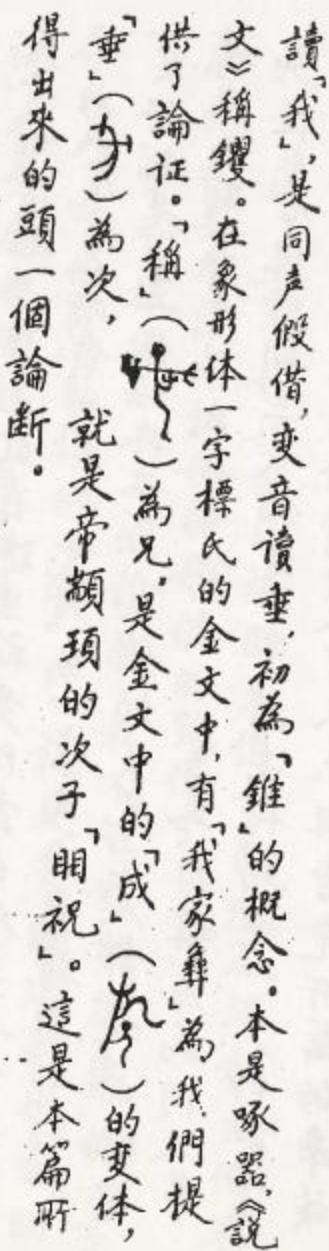 讀「我」,是同声假借,变音讀垂,初為「錐」的概念。本是啄器,《說
文》稱钁。在象形体一字標氏的金文中,有「我家彝」為我們提
供了論证。「稱」()為兄,是金文中的「成」()的変体,
「垂」()為次,就是帝顓頊的次子「明祝」。這是本篇所
得出來的頭一個論断。